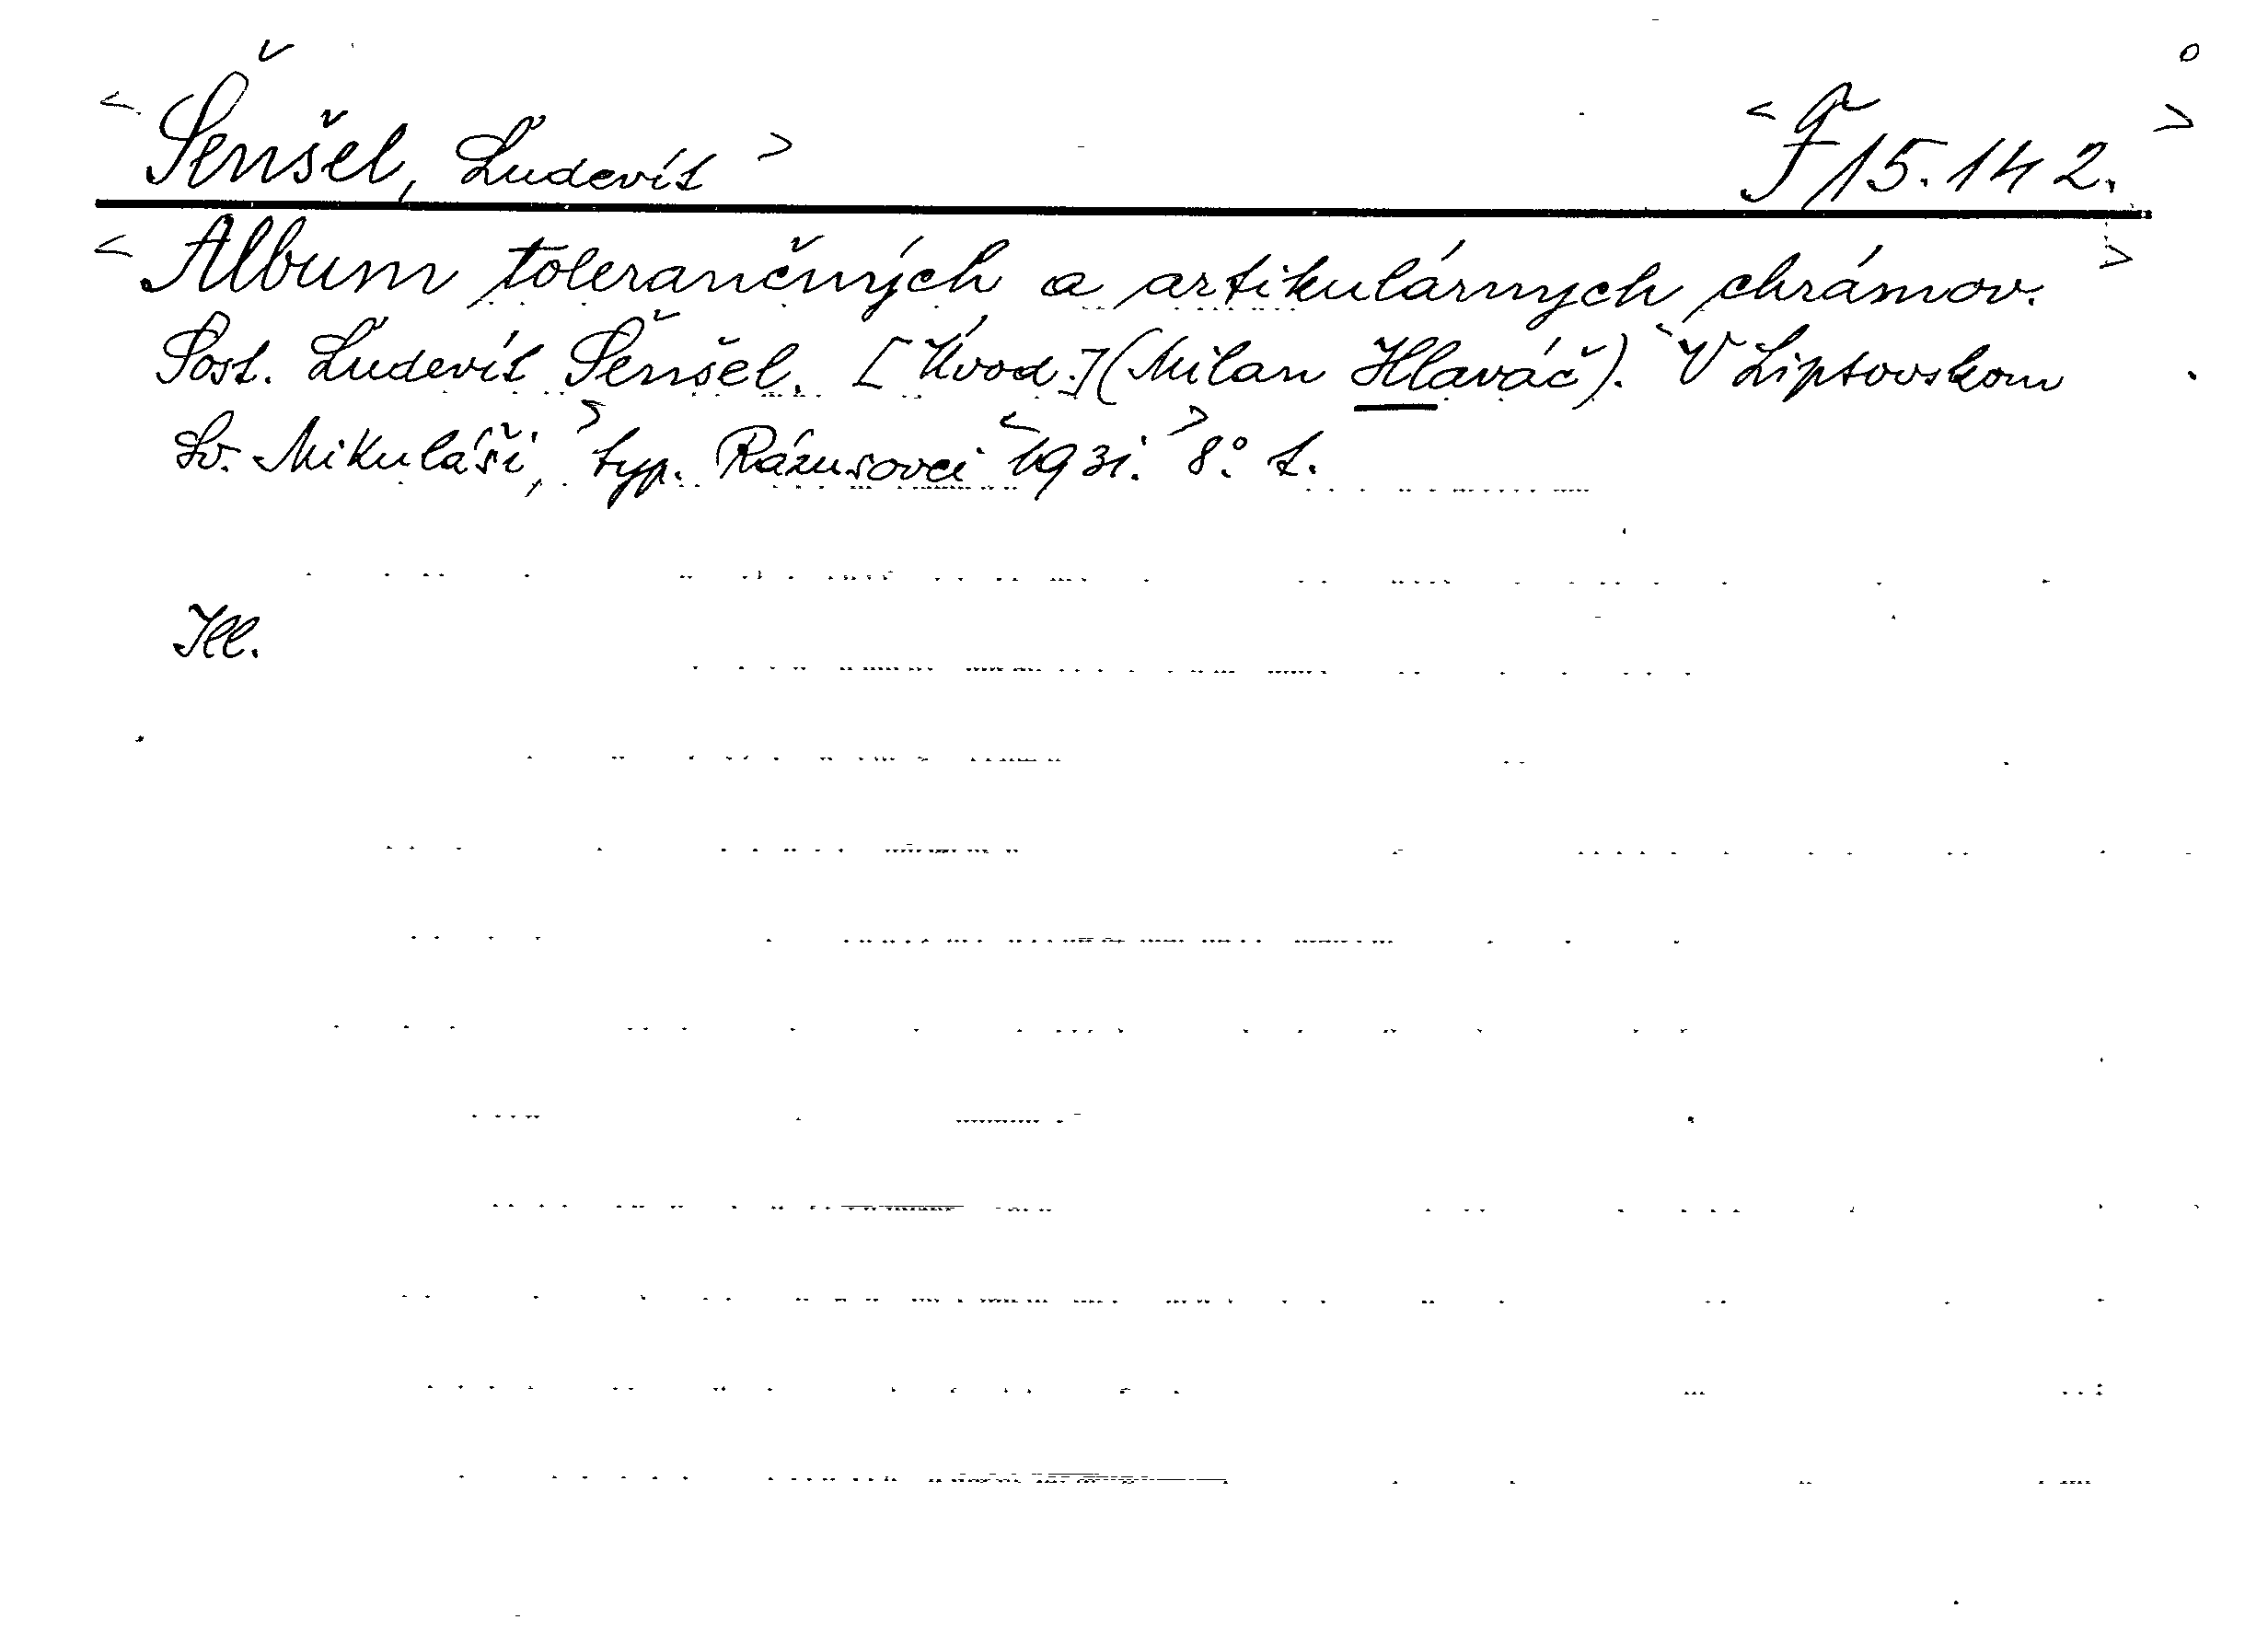 < Šenšel, Ľudevít > < F 15.142. >
< Album tolerančných a artikulárnych chrámov. >
Sost. Ľudevít Šenšel. [Úvod.] (Milan Hlaváč). < V Liptovskom
Sv. Mikuláši, > typ. Rázusovci < 1931. > 8° t.
Ill.